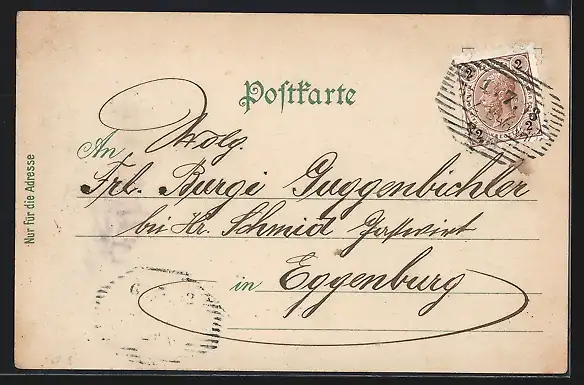 Postkarte
An Wolg.
Frl. Burgi Guggenbichler
bei Hr. Schmid Gastwirt
in Eggenburg
Nur für die Adresse
2 2
2 2